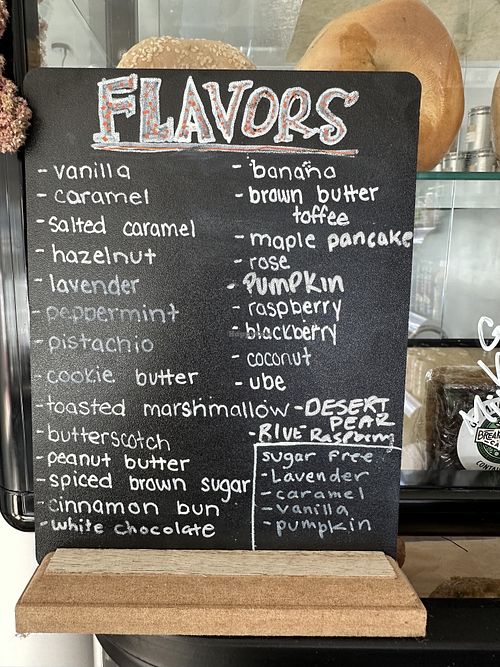 FLAVORS
- vanilla
- caramel
- salted caramel
- hazelnut
- lavender
- peppermint
- pistachio
- cookie butter
- toasted marshmallow
- butterscotch
- peanut butter
- spiced brown sugar
- cinnamon bun
- white chocolate
- banana
- brown butter
toffee
- maple pancake
- rose
- PUMPKIN
- raspberry
- blackberry
- coconut
- ube
- DESERT
PEAR
- BLUE Raspberry
sugar free
- Lavender
- caramel
- vanilla
- pumpkin